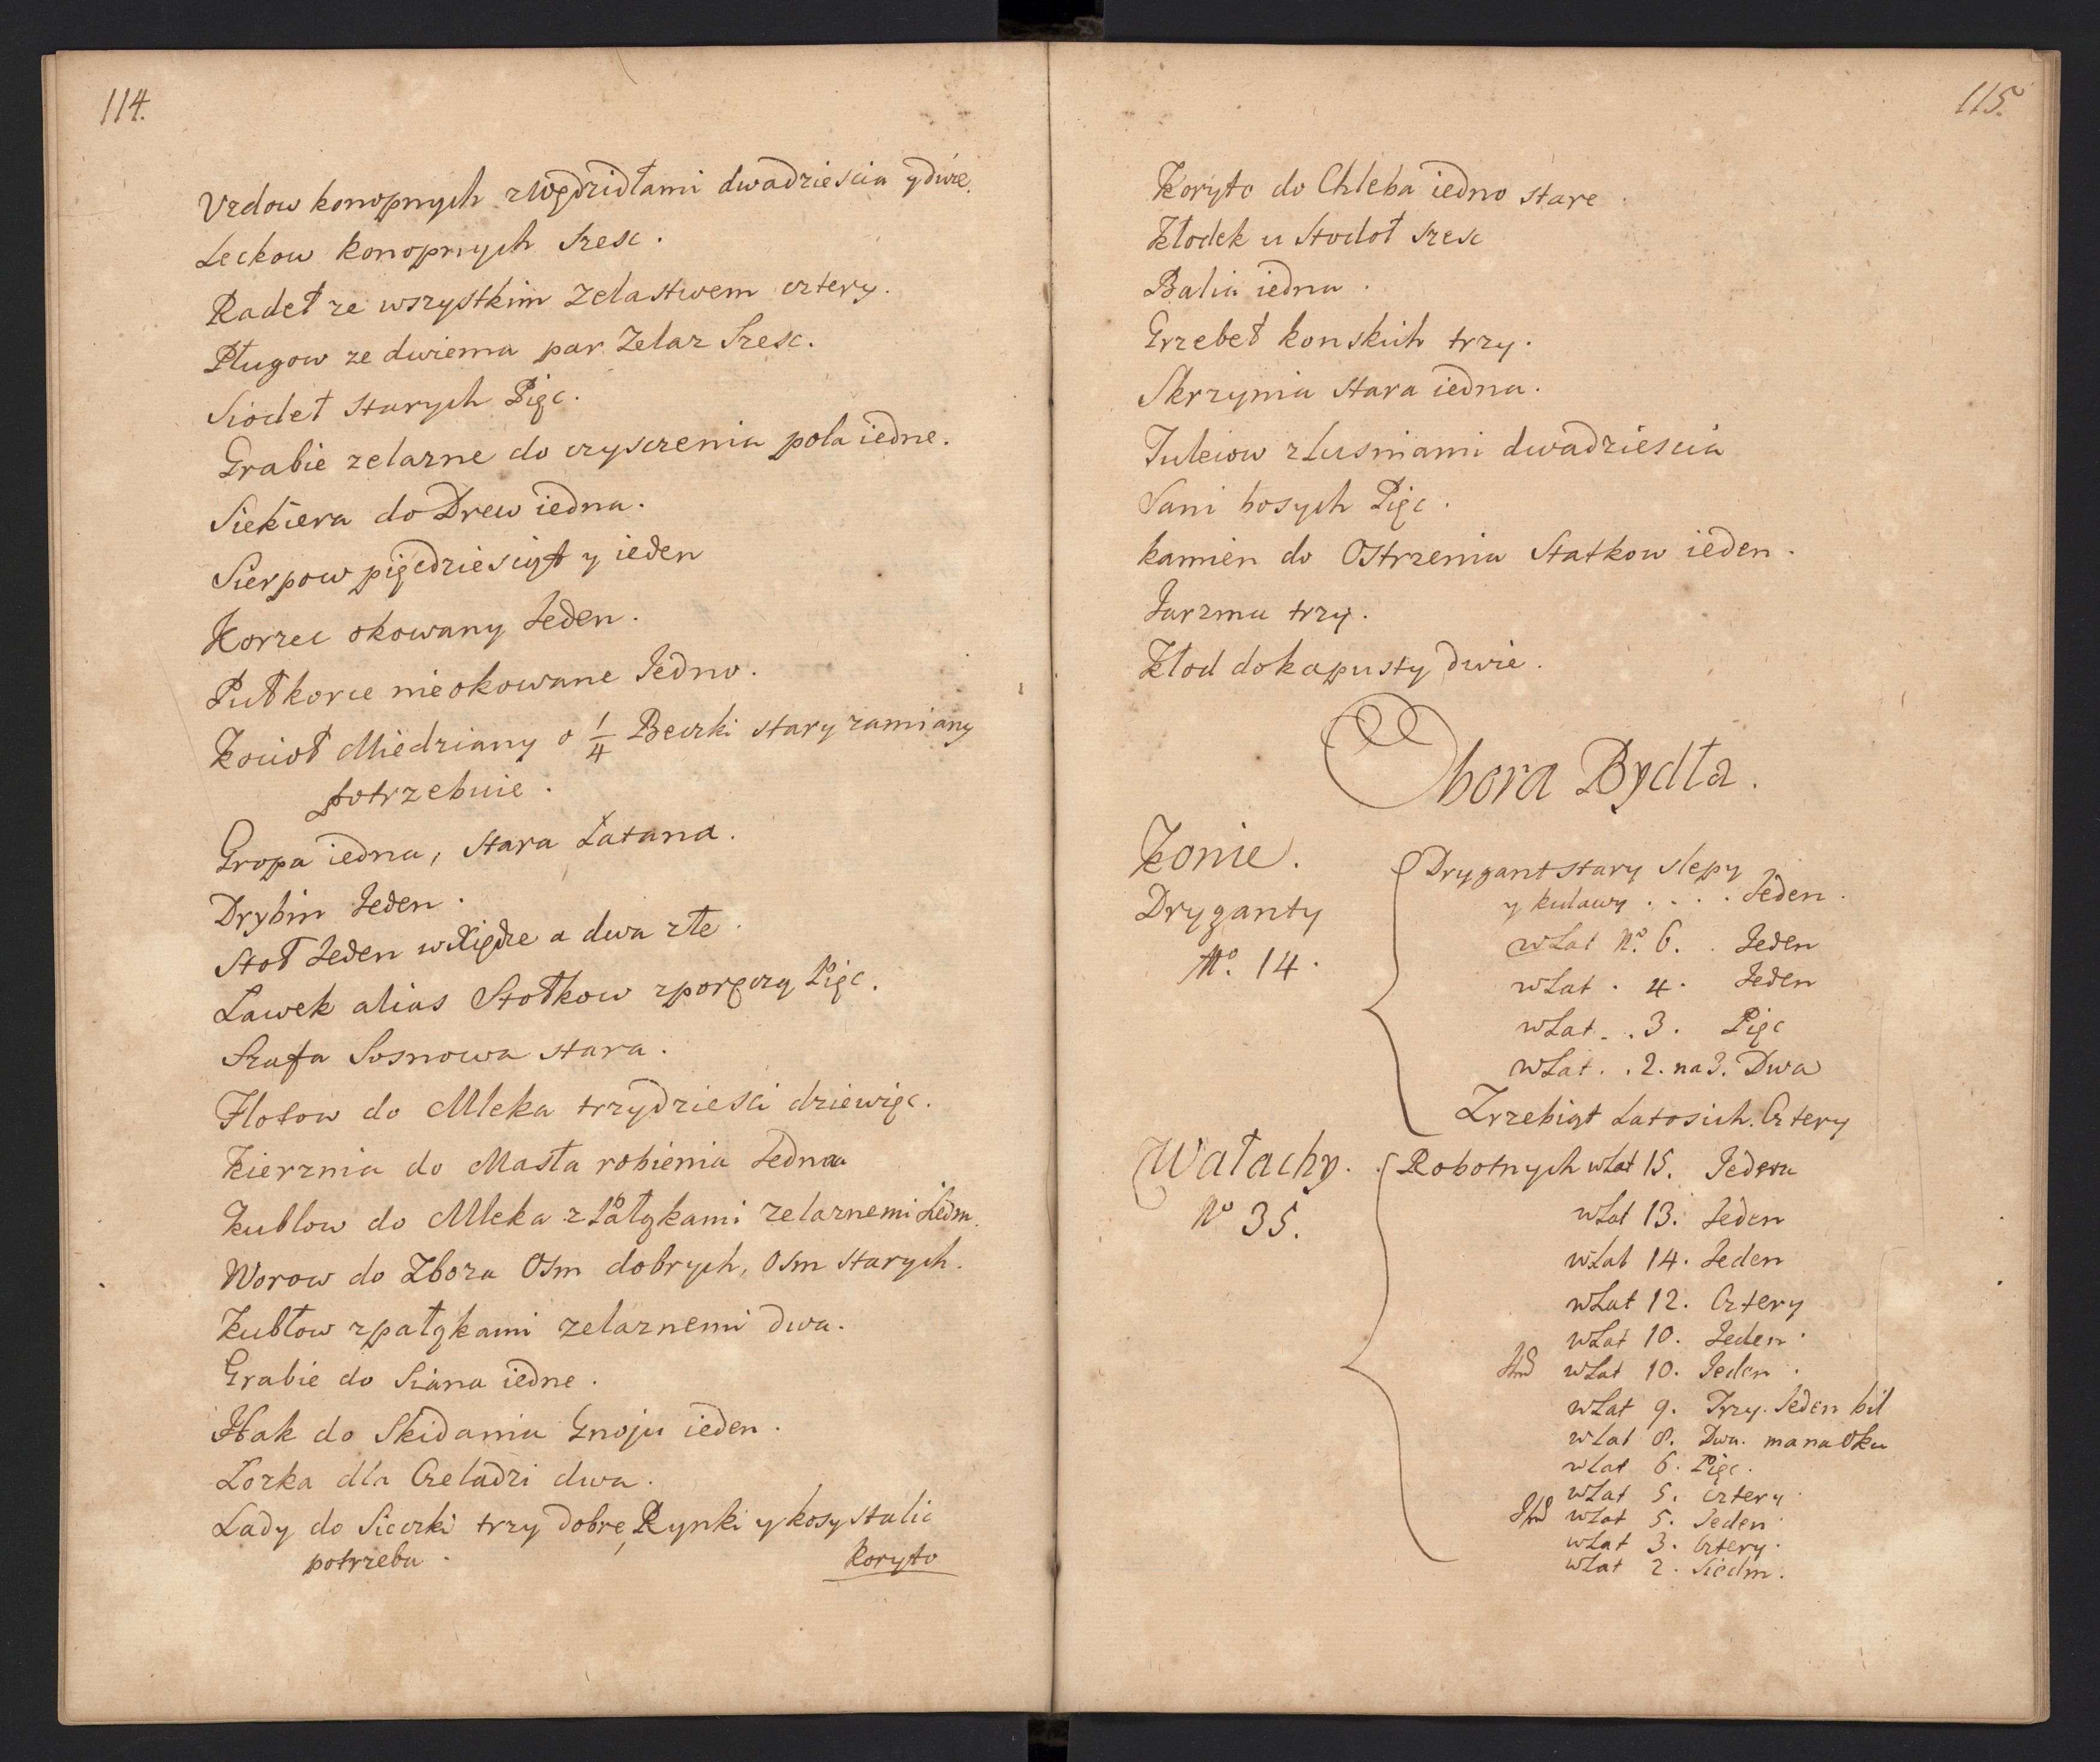 114.
Uzdow konopnych z Wędzidłami dwadziescia y dwie.
Leckow konopnych Szesc.
Radeł ze wszystkim Zelastwem cztery.
Pługow ze dwiema par Zelaz Szesc.
Siodeł starych Pięc.
Grabie zelazne do czyszczenia pola iedne.
Siekiera do Drew iedna.
Sierpow pięcdziesiąt y ieden
Korzec okowany Jeden.
Pułkorce nieokowane Jedno.
Kocioł Miedziany o 1/4 Beczki stary zamiany
potrzebuie.
Gropa iedna, stara Łatana.
Drybin Jeden.
Stoł Jeden w Xiędze a dwa złe.
Lawek alias Stołkow z poręczą Pięc.
Szafa Sosnowa stara.
Flotow do Mleka trzydziesci dziewięc.
Kierznia do Masła robienia Jedna
Kublow do Mleka z Pałąkami zelaznemi Siedm.
Worow do Zboza Osm dobrych, Osm starych.
Kubłow z pałąkami zelaznemi dwa.
Grabie do Siana iedne.
Hak do Skidania Gnoju ieden.
Łozka dla Czeladzi dwa.
Lady do Sieczki trzy dobre, Rynki y kosy stalic
potrzeba.
Koryto
115.
Koryto do Chleba iedno stare.
Kłodek u Stodoł szesc
Balia iedna.
Grzebeł konskich trzy.
Skrzynia stara iedna.
Tuleiow z Lusniami dwadziescia
Sani bosych Pięc.
kamien do Ostrzenia Statkow ieden.
Jarzma trzy.
Kłod do kapusty dwie.
Obora Bydła.
Konie.
Dryganty
No. 14.
Drygant stary slepy
y kulawy . . . . Jeden.
w Lat No. 6. . Jeden
w Lat . 4. Jeden
w Lat . . 3. Pięc
w Lat . . 2. na 3. Dwa
Zrzebiąt Latosich. Cztery
Wałachy.
No 35.
Robotnych w Lat 15. Jeden
w Lat 13. Jeden
w Lat 14. Jeden
w Lat 12. Cztery
w Lat 10. Jeden.
w Lat 10. Jeden.
w Lat 9. Trzy. Jeden bil
w Lat 8. Dwa. ma na Oku
w Lat 6. Pięc.
w Lat 5. Cztery.
w Lat 5. Jeden.
w Lat 3. Cztery.
w Lat 2. Siedm.